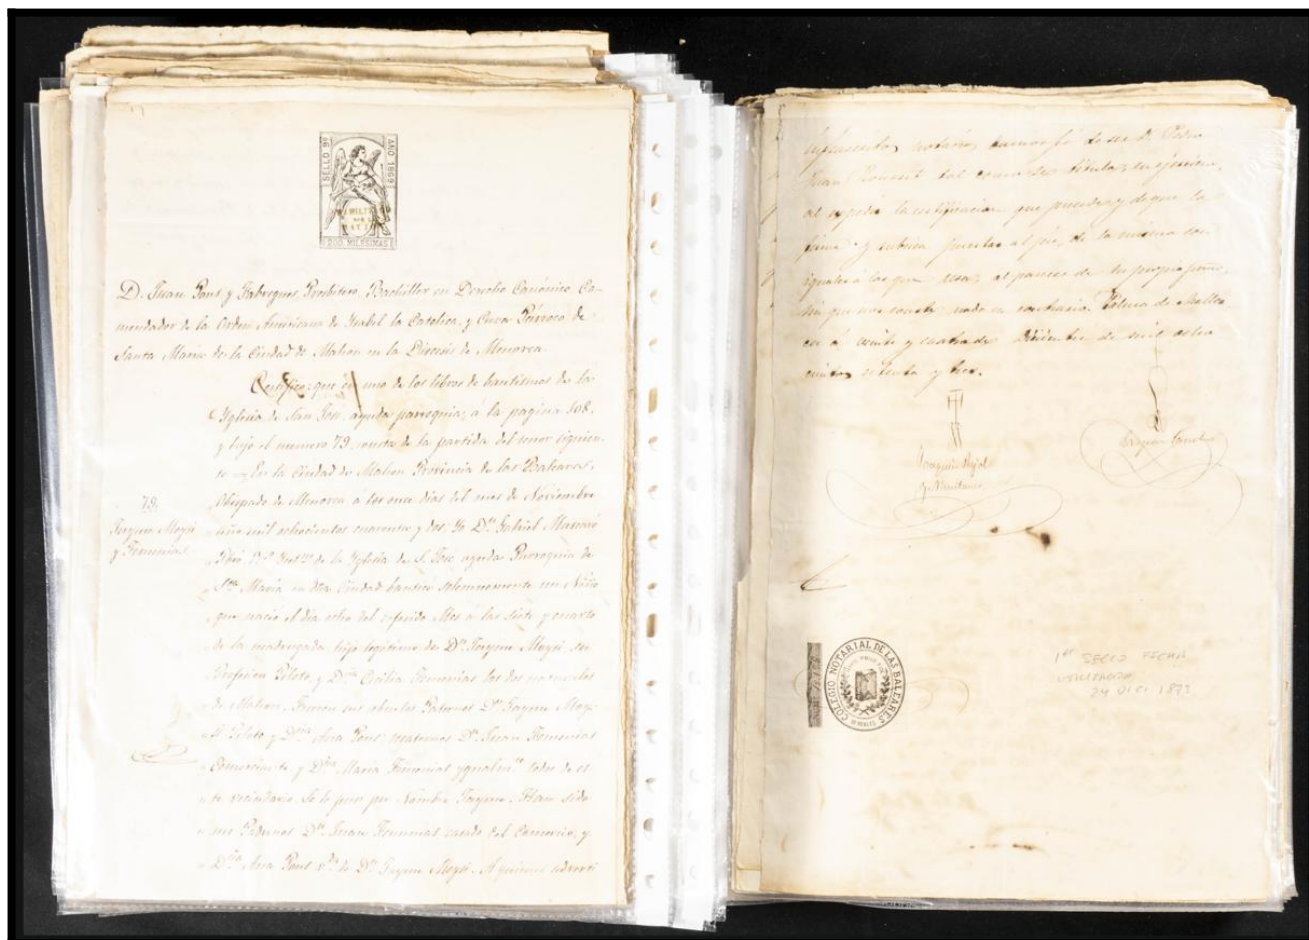 SELLO 9º
AÑO 1869
HABILITADO
POR LA
NACION
200 MILESIMAS
D. Juan Pons y Fabregues, Presbitero, Bachiller en Derecho Canónico Co-
mendador de la Orden Americana de Isabel la Catolica, y Cura Párroco de
Santa Maria de la Ciudad de Mahon en la Diocesis de Menorca
Certifico: que en uno de los libros de bautismos de la
Yglesia de San Jose ayuda parroquia, á la pagina 108,
y bajo el numero 79, consta de la partida del tenor siguien-
te = En la Ciudad de Mahon Provincia de las Baleares,
Obispado de Menorca a los once dias del mes de Noviembre
año mil ochocientos cuarenta y dos: Yo Dn. Gabriel Mascaró
de la Yglesia de S. Jose ayuda Parroquia de
Sta. Maria en dha. Ciudad bautizé solemnemente un Niño
que nació el dia ocho del referido Mes a las siete y cuarto
de la madrugada hijo legitimo de Dn. Jayme Moysi su
Profesion Piloto y Dña. Cecilia Femenias los dos naturales
de Mahon. Fueron sus abuelos Paternos Dn. Jayme Moy-
si Piloto y Dña. Ana Pons: maternos Dn. Juan Femenias
Comerciante y Dña. Maria Femenias ygualmte. todos de es
te vecindario. Se le puso por Nombre Jayme. Han sido
sus Padrinos Dn. Juan Femenias casado del Comercio, y
Dña. Ana Pons de Dn. Jayme Moysi. A quienes adverti
79.
Jayme Moysi
y Femenias
notario,
Juan tal como se titula, en ejercicio
al expedir la certificacion que precede y de que la
firma y rubrica puestas al pié de la misma son
iguales á las que usa, al parecer de su propio puño,
sin que nos conste nada en contrario. Palma de Mallor-
ca á veinte y cuatro de Diciembre de mil ocho
cientos setenta y tres.
Joaquin Pujol
y Muntaner
COLEGIO NOTARIAL DE LAS BALEARES
1er SELLO FECHA
UTILIZADO
24 DIC. 1873